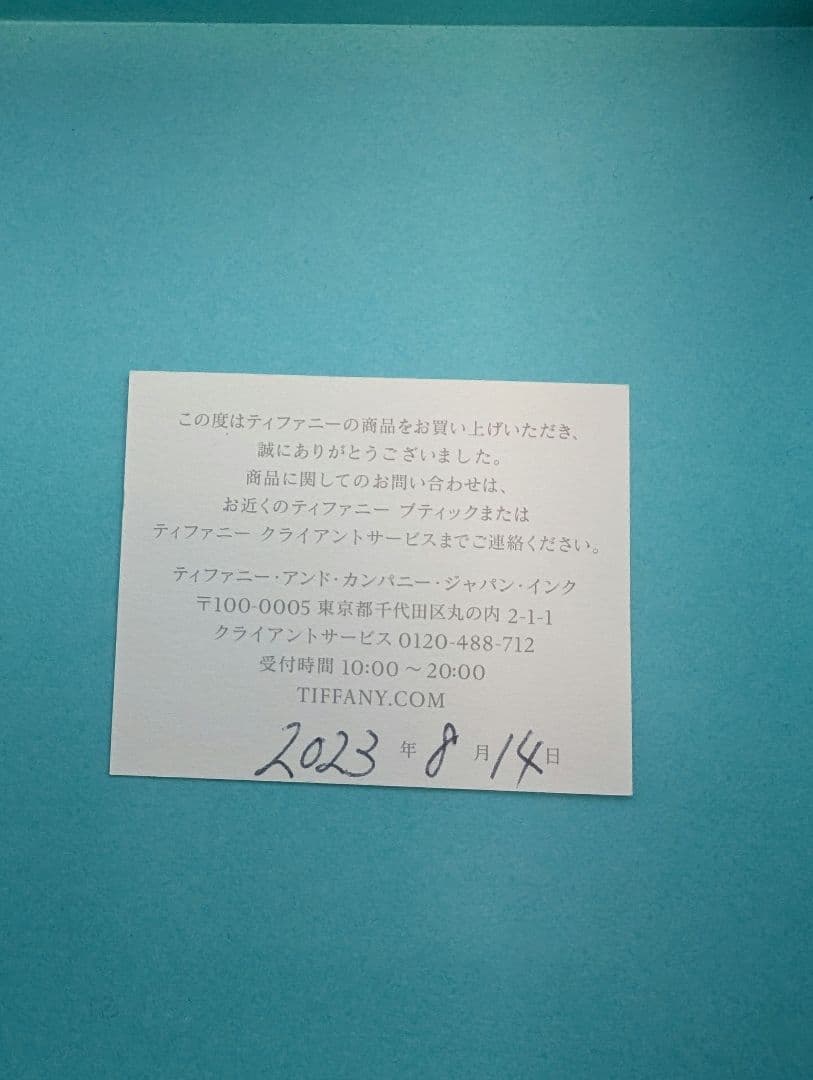 この度はティファニーの商品をお買い上げいただき、
誠にありがとうございました。
商品に関してのお問い合わせは、
お近くのティファニー ブティックまたは
ティファニー クライアントサービスまでご連絡ください。
ティファニー・アンド・カンパニー・ジャパン・インク
〒100-0005 東京都千代田区丸の内 2-1-1
クライアントサービス 0120-488-712
受付時間 10:00 〜 20:00
TIFFANY.COM
2023 年 8 月 14 日